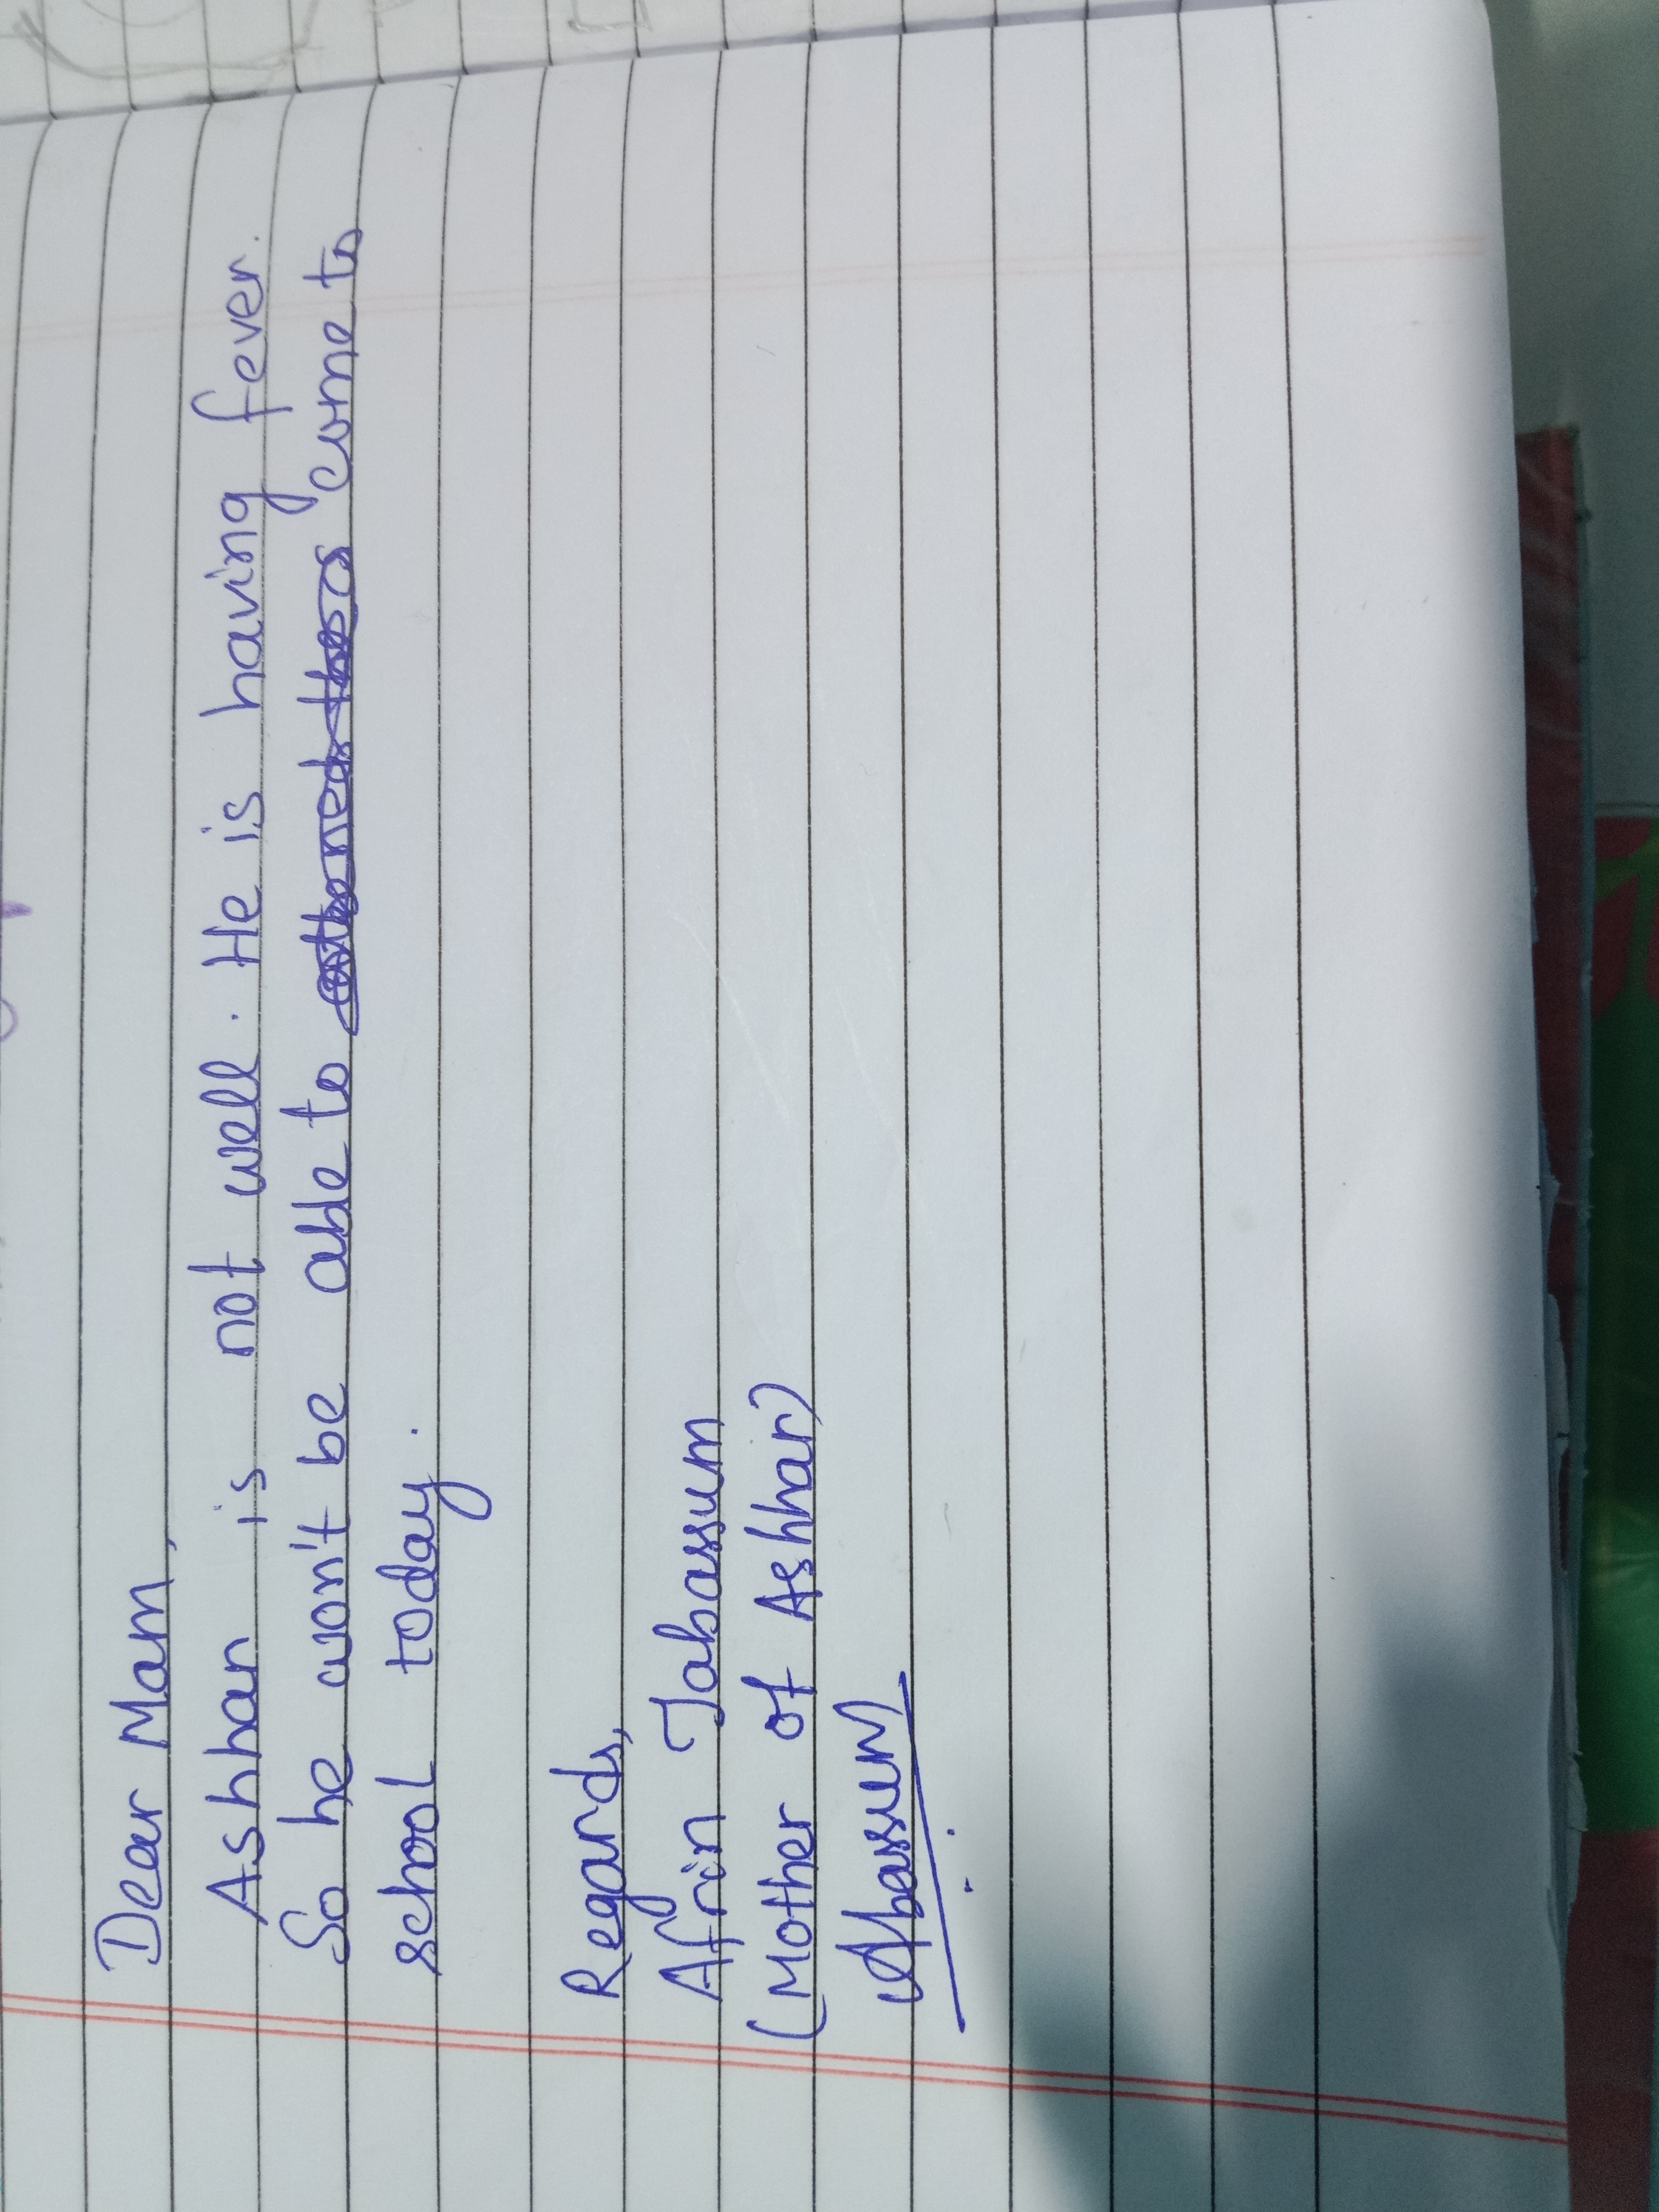 Dear Mam,
Ashhar is not well. He is having fever.
So he won't be able to come to
school today.
Regards,
Afrin Tabassum
(Mother of Ashhar)